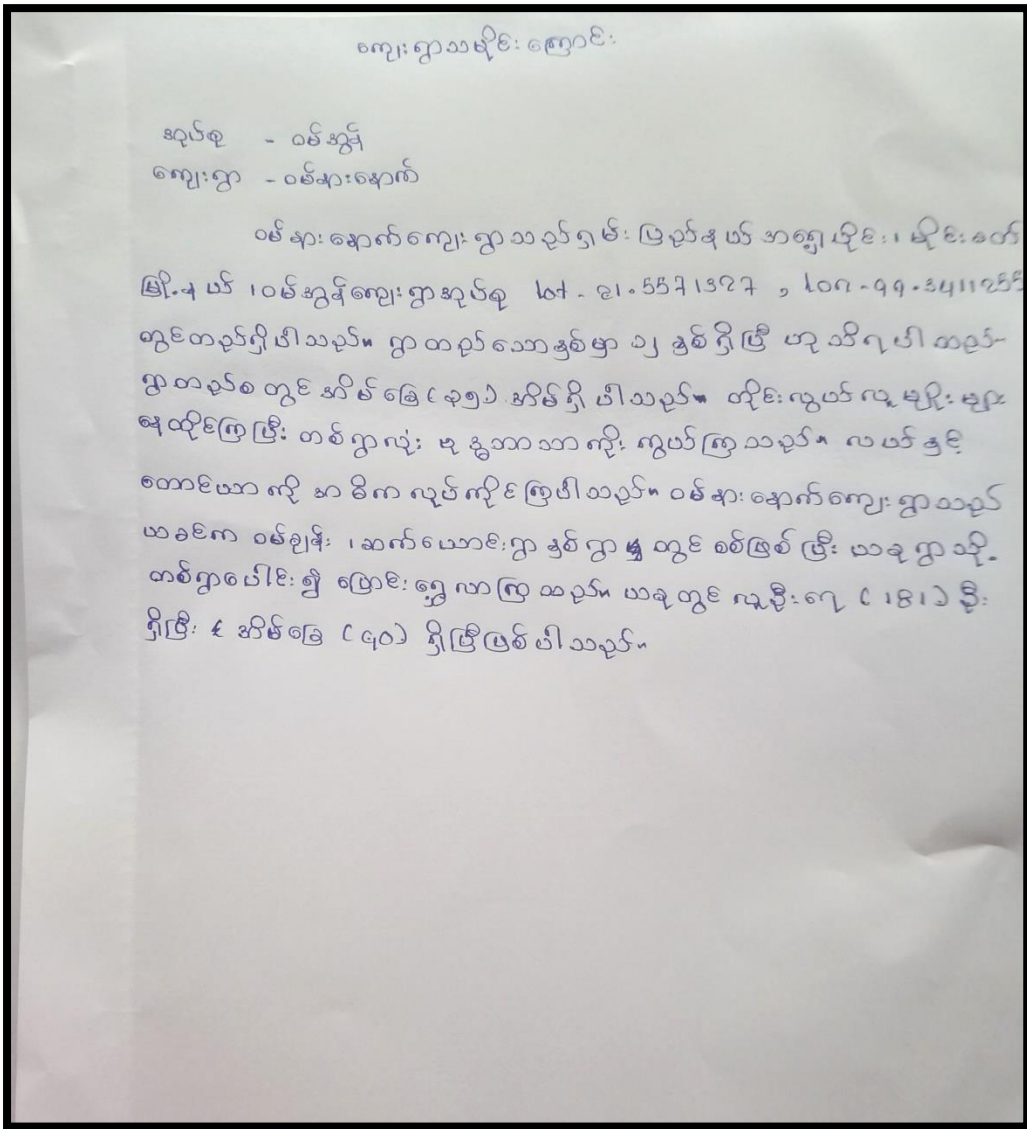 ကျေးရွာသမိုင်းကြောင်း
အုပ်စု - ဝမ်အွန်
ကျေးရွာ - ဝမ်နားနောက်
ဝမ်နားနောက်ကျေးရွာသည်ရှမ်းပြည်နယ်အရှေ့ပိုင်း၊ မိုင်းခတ်
မြို့နယ် ၊ဝမ်အွန်ကျေးရွာအုပ်စု lat - 21.5571327 , lon - 99.3411255
တွင်တည်ရှိပါသည်။ ရွာတည်သောနှစ်မှာ ၁၂ နှစ်ရှိပြီ ဟု သိရပါသည်
ရွာတည်စတွင် အိမ်ခြေ(၃၅) အိမ်ရှိပါသည်။ တိုင်းလွယ်လူမျိုးများ
နေထိုင်ကြပြီး တစ်ရွာလုံး ဗုဒ္ဓဘာသာကိုးကွယ်ကြသည်။ လယ်နှင့်
တောင်ယာကို အဓိကလုပ်ကိုင်ကြပါသည်။ ဝမ်နားနောက်ကျေးရွာသည်
ယခင်က ဝမ်ဂျုန်း ၊ဆက်ယောင်းရွာ နှစ်ရွာ တွင် စစ်ဖြစ်ပြီး ယခုရွာသို့
တစ်ရွာပေါင်း၍ ပြောင်းရွှေ့လာကြသည်။ ယခုတွင် လူဦးရေ (181) ဦး
ရှိပြီး အိမ်ခြေ (၄၀) ရှိပြီဖြစ်ပါသည်။